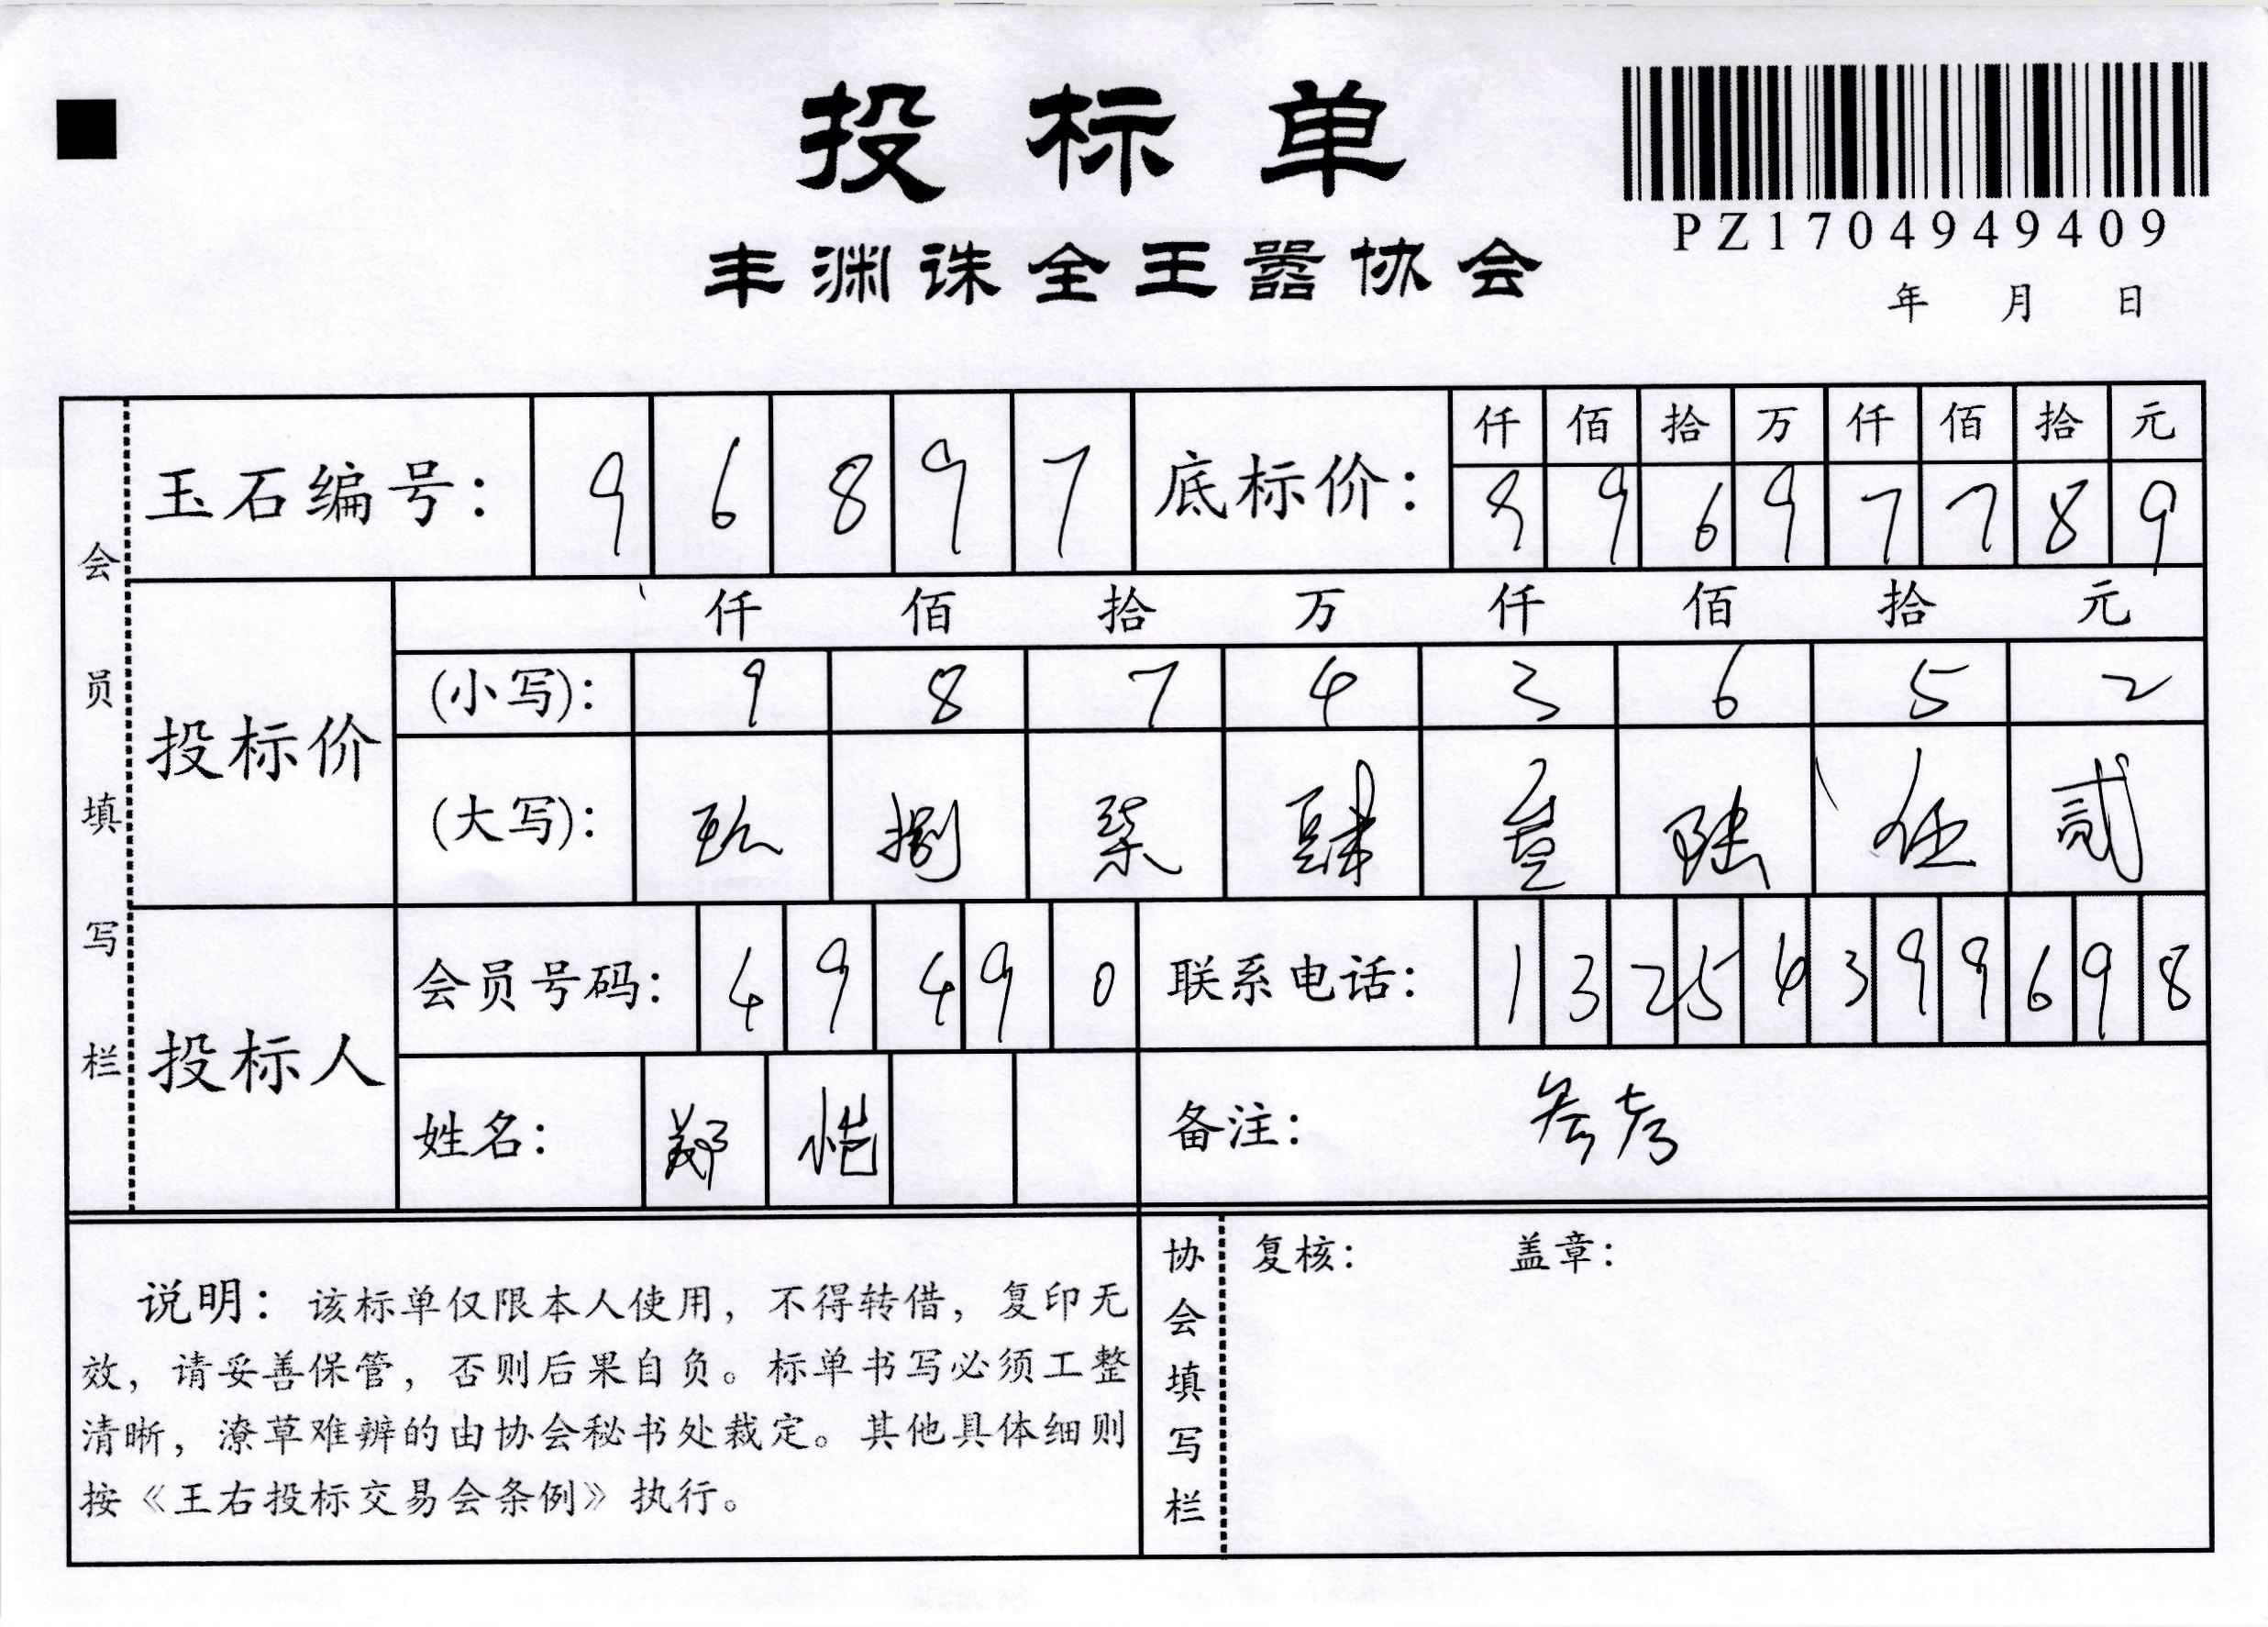 投标单
PZ1704949409
丰渊诛全王嚣协会
年 月 日
会员填写栏
玉石编号： 9 6 8 9 7
底标价： 仟 佰 拾 万 仟 佰 拾 元
8 9 6 9 7 7 8 9
投标价
仟 佰 拾 万 仟 佰 拾 元
(小写)： 9 8 7 4 3 6 5 2
(大写)： 玖 捌 柒 肆 叁 陆 伍 贰
投标人
会员号码： 4 9 4 9 0
联系电话： 1 3 2 5 4 3 9 9 6 9 8
姓名： 郑 恺
备注： 参考
说明：该标单仅限本人使用，不得转借，复印无
效，请妥善保管，否则后果自负。标单书写必须工整
清晰，潦草难辨的由协会秘书处裁定。其他具体细则
按《王右投标交易会条例》执行。
协会填写栏
复核： 盖章：